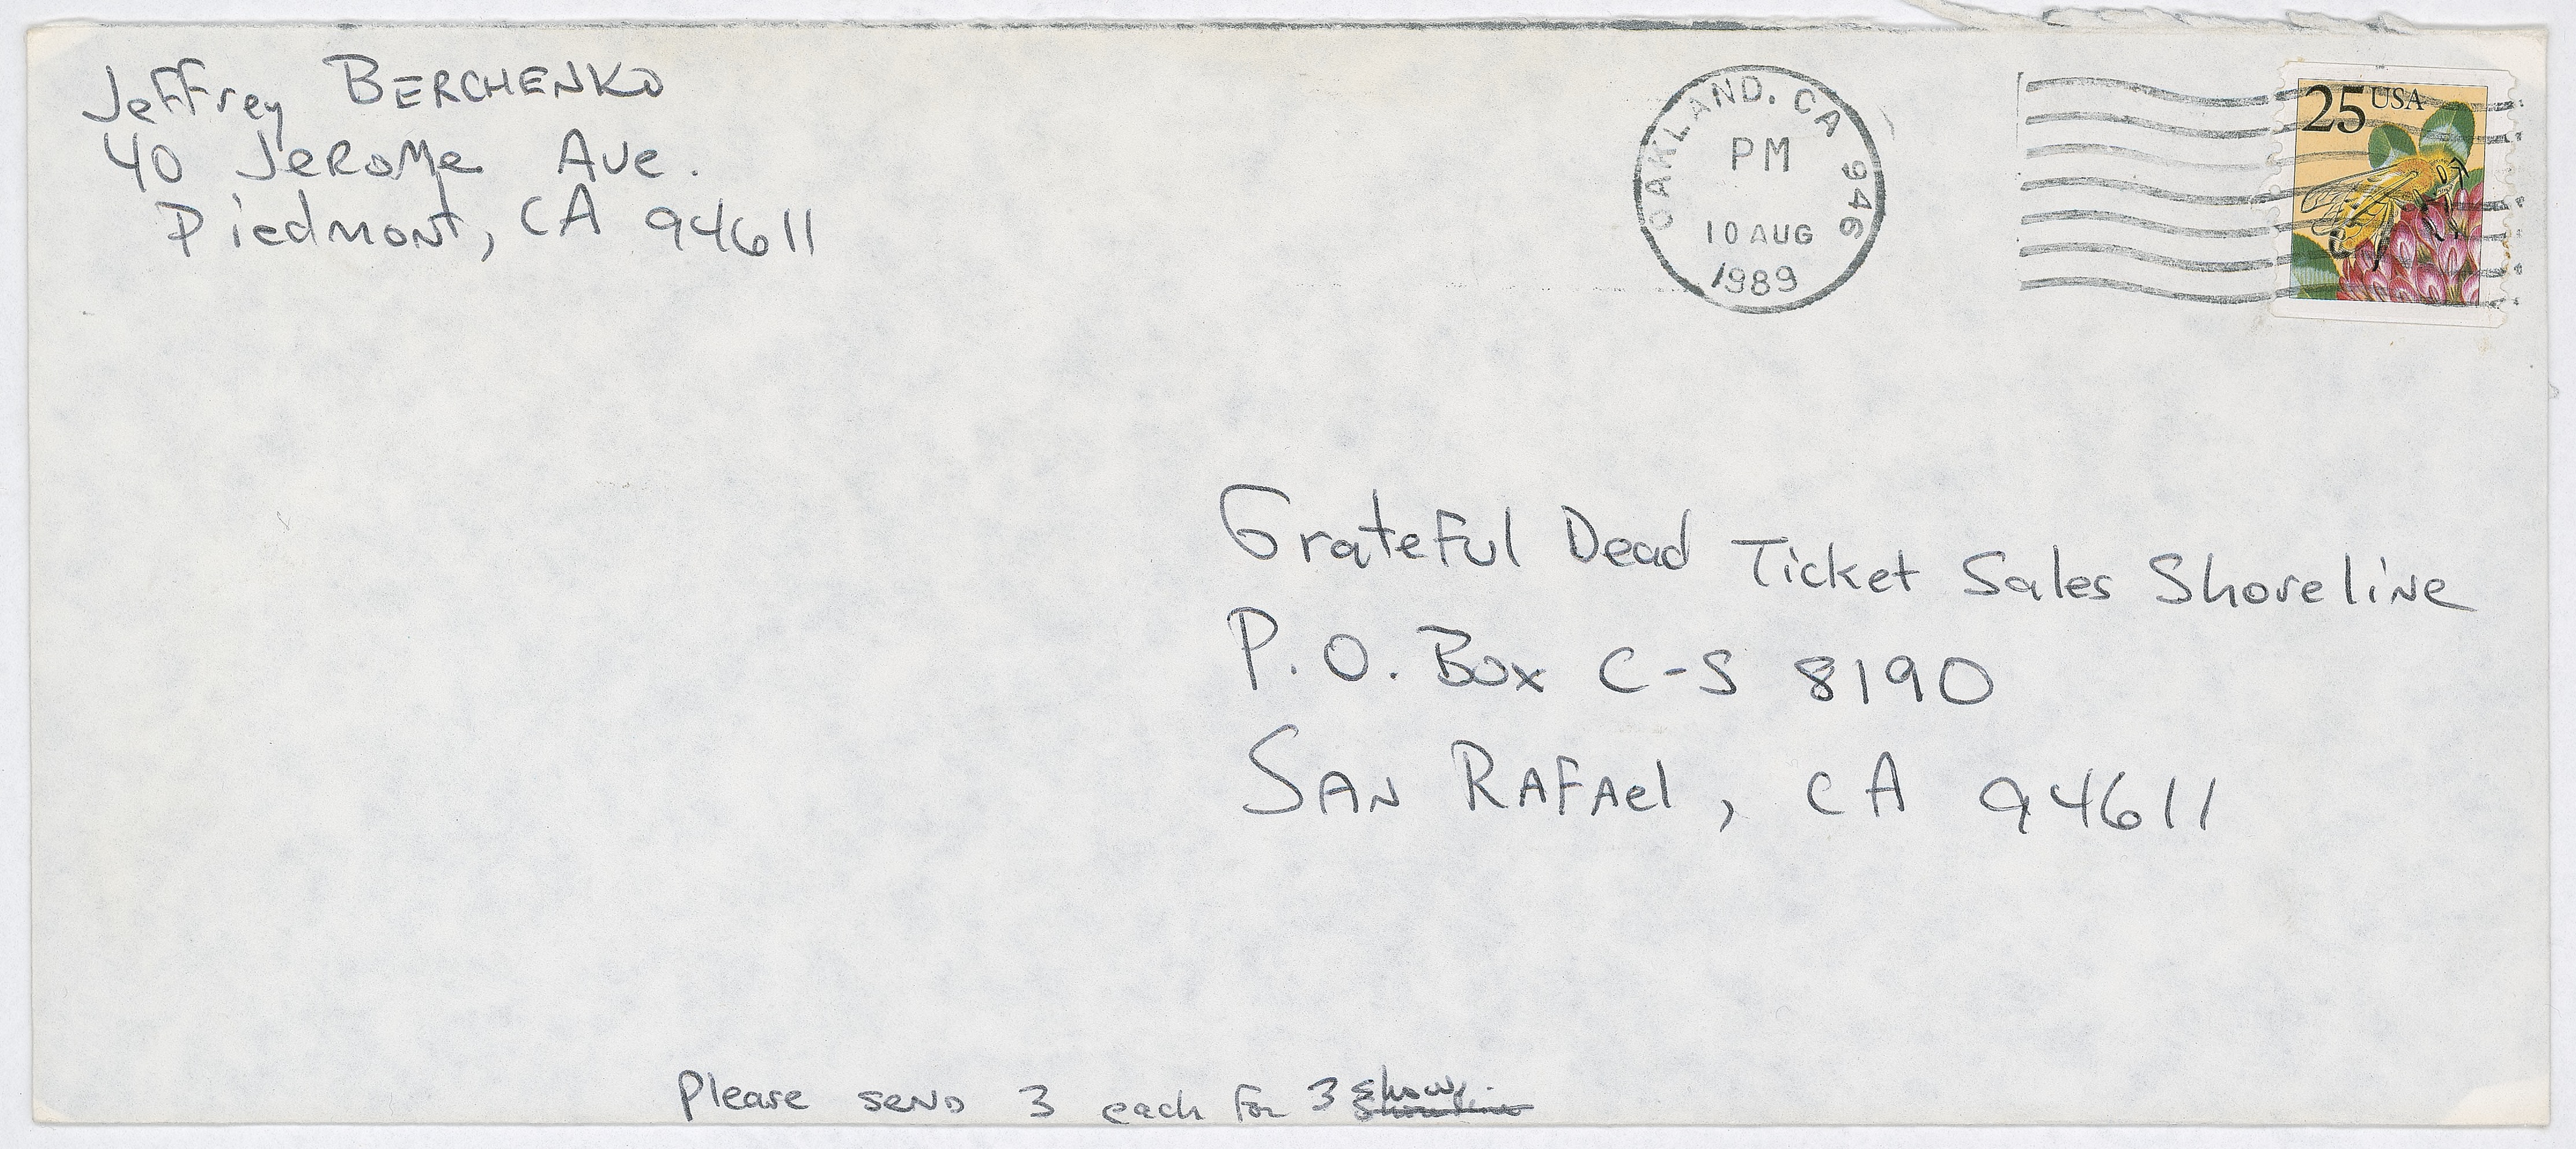 Jeffrey BERCHENKO
40 Jerome Ave.
Piedmont, CA 94611
OAKLAND, CA 946
PM
10 AUG
1989
25 USA
Grateful Dead Ticket Sales Shoreline
P.O. Box C-S 8190
SAN RAFAel, CA 94611
Please send 3 each for 3 shows.